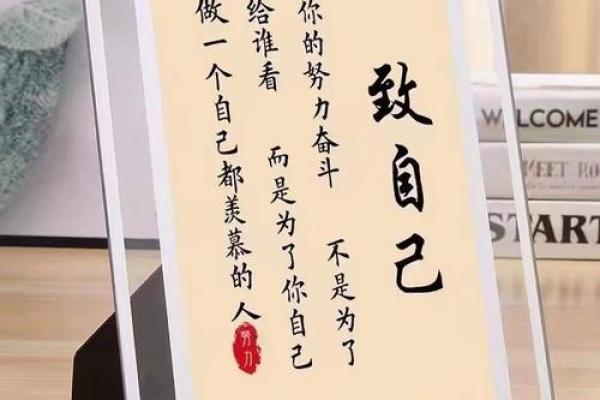 致自己
你的努力奋斗 不是为了
给谁看 而是为了你自己
做一个自己都羡慕的人
努力
WELCOME
MEET RO
START